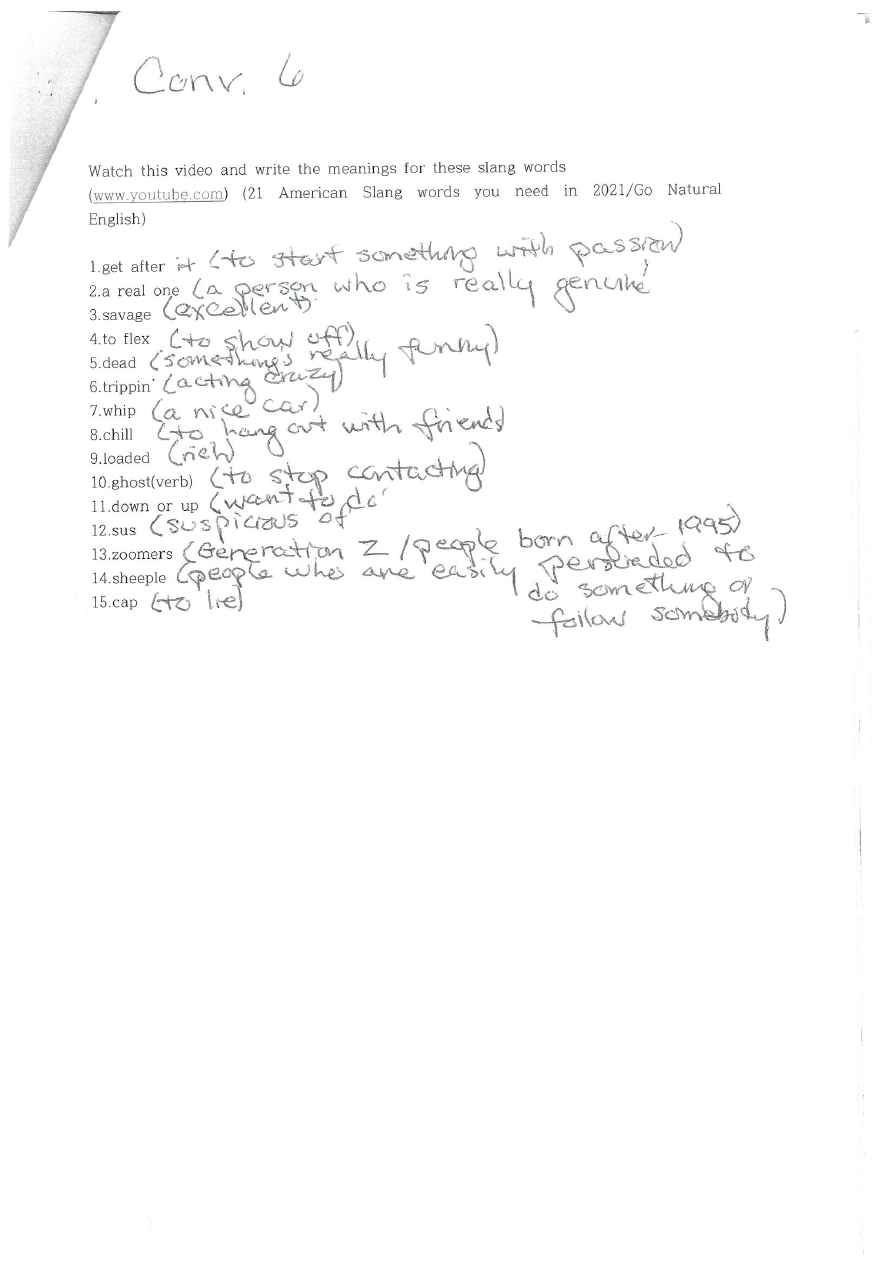 Conv. 6
Watch this video and write the meanings for these slang words
(www.youtube.com) (21 American Slang words you need in 2021/Go Natural
English)
1.get after it (to start something with passion)
2.a real one (a person who is really genuine)
3.savage (excellent)
4.to flex (to show off)
5.dead (something's really funny)
6.trippin' (acting crazy)
7.whip (a nice car)
8.chill (to hang out with friends)
9.loaded (rich)
10.ghost(verb) (to stop contacting)
11.down or up (want to do
12.sus (suspicious of
13.zoomers (Generation Z / people born after 1995)
14.sheeple (people who's are easily persuaded to
do something or
15.cap (to lie)
follow somebody)